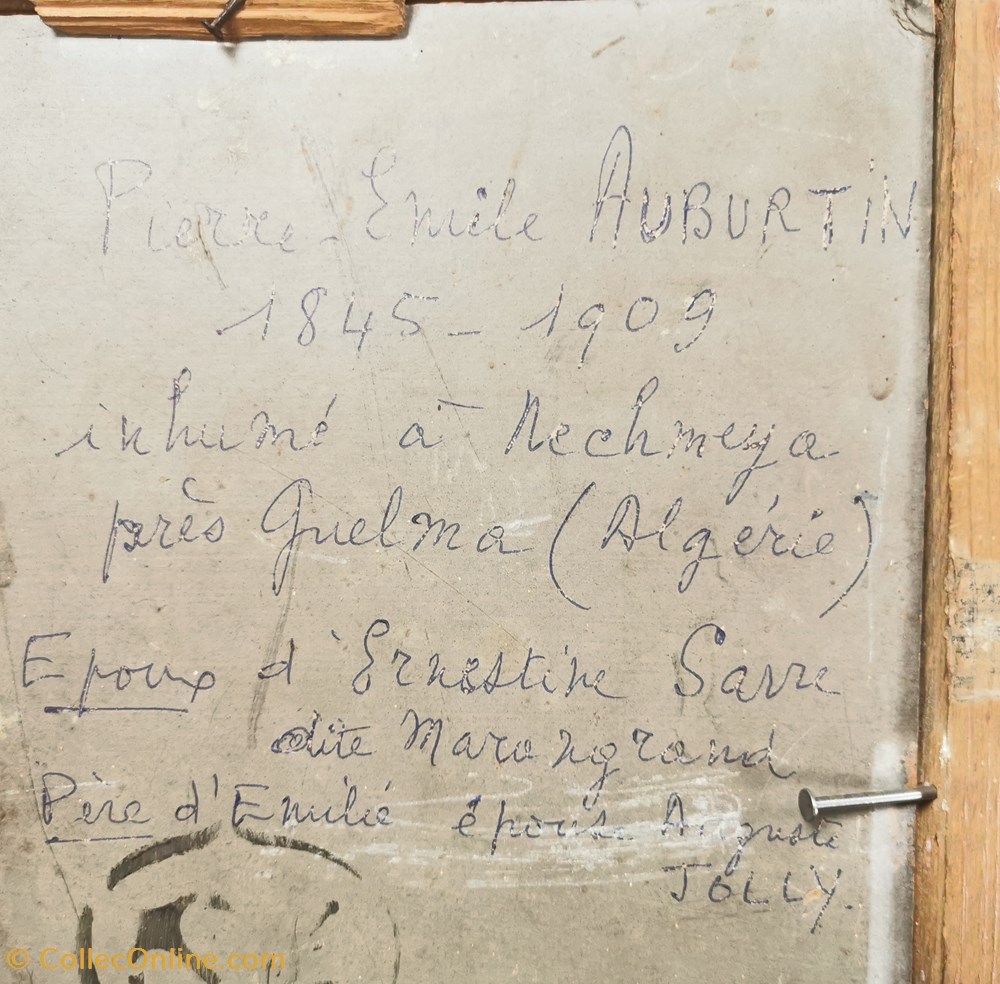 Pierre-Emile AUBURTIN
1845 - 1909
inhumé à Nechmeya
près Guelma (Algérie)
Epoux d'Ernestine Sarre
dite Marongrand
Père d'Emilie épouse Auguste
JOLLY.
© CollecOnline.com